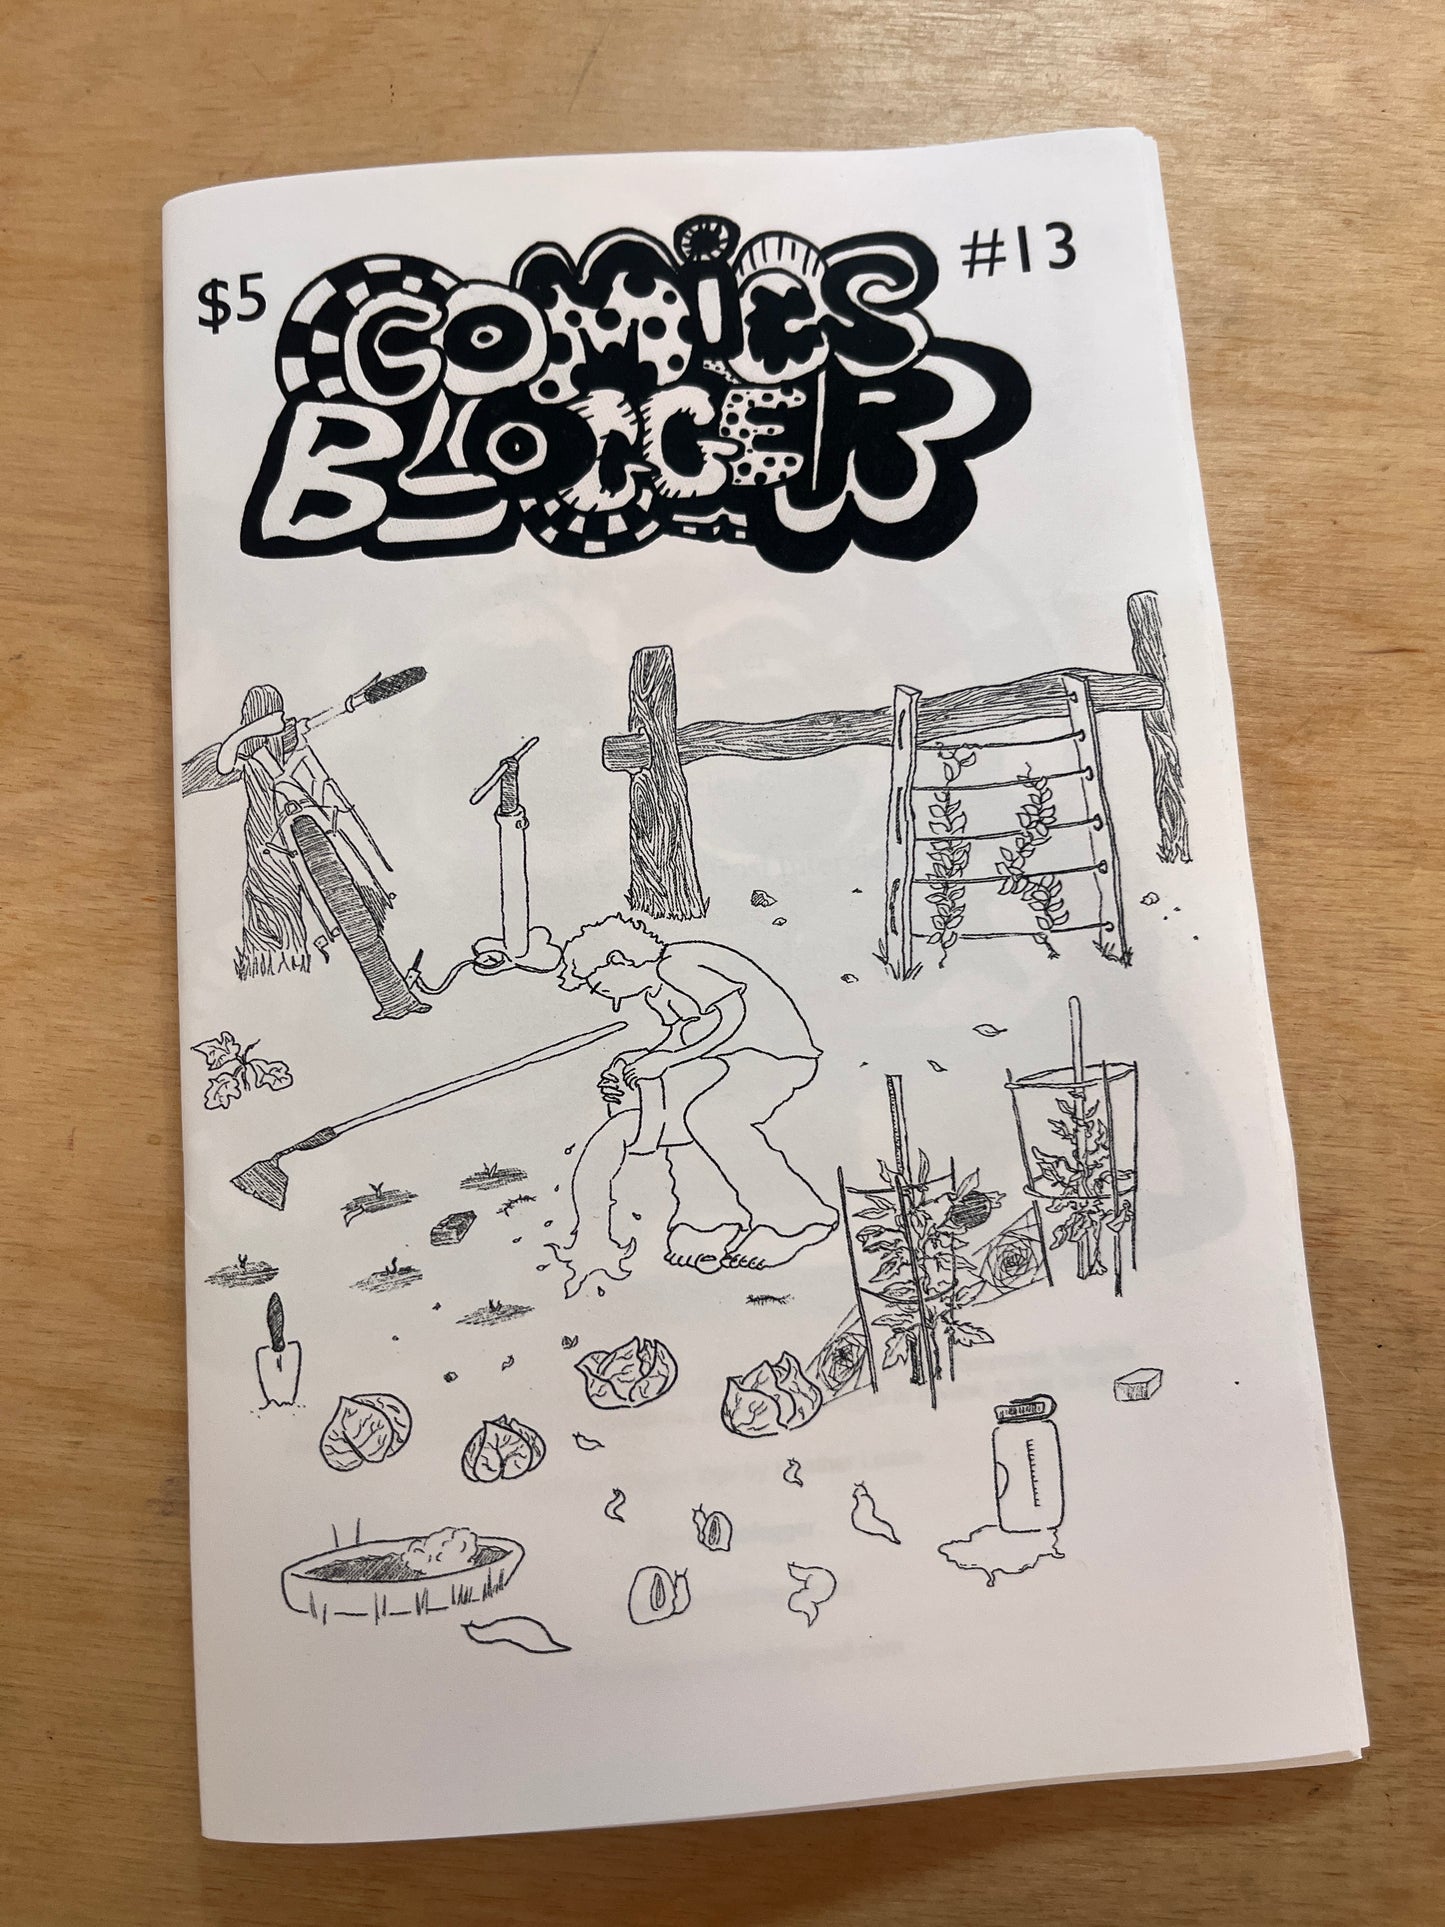 $5
COMICS
#13
BLOGGER